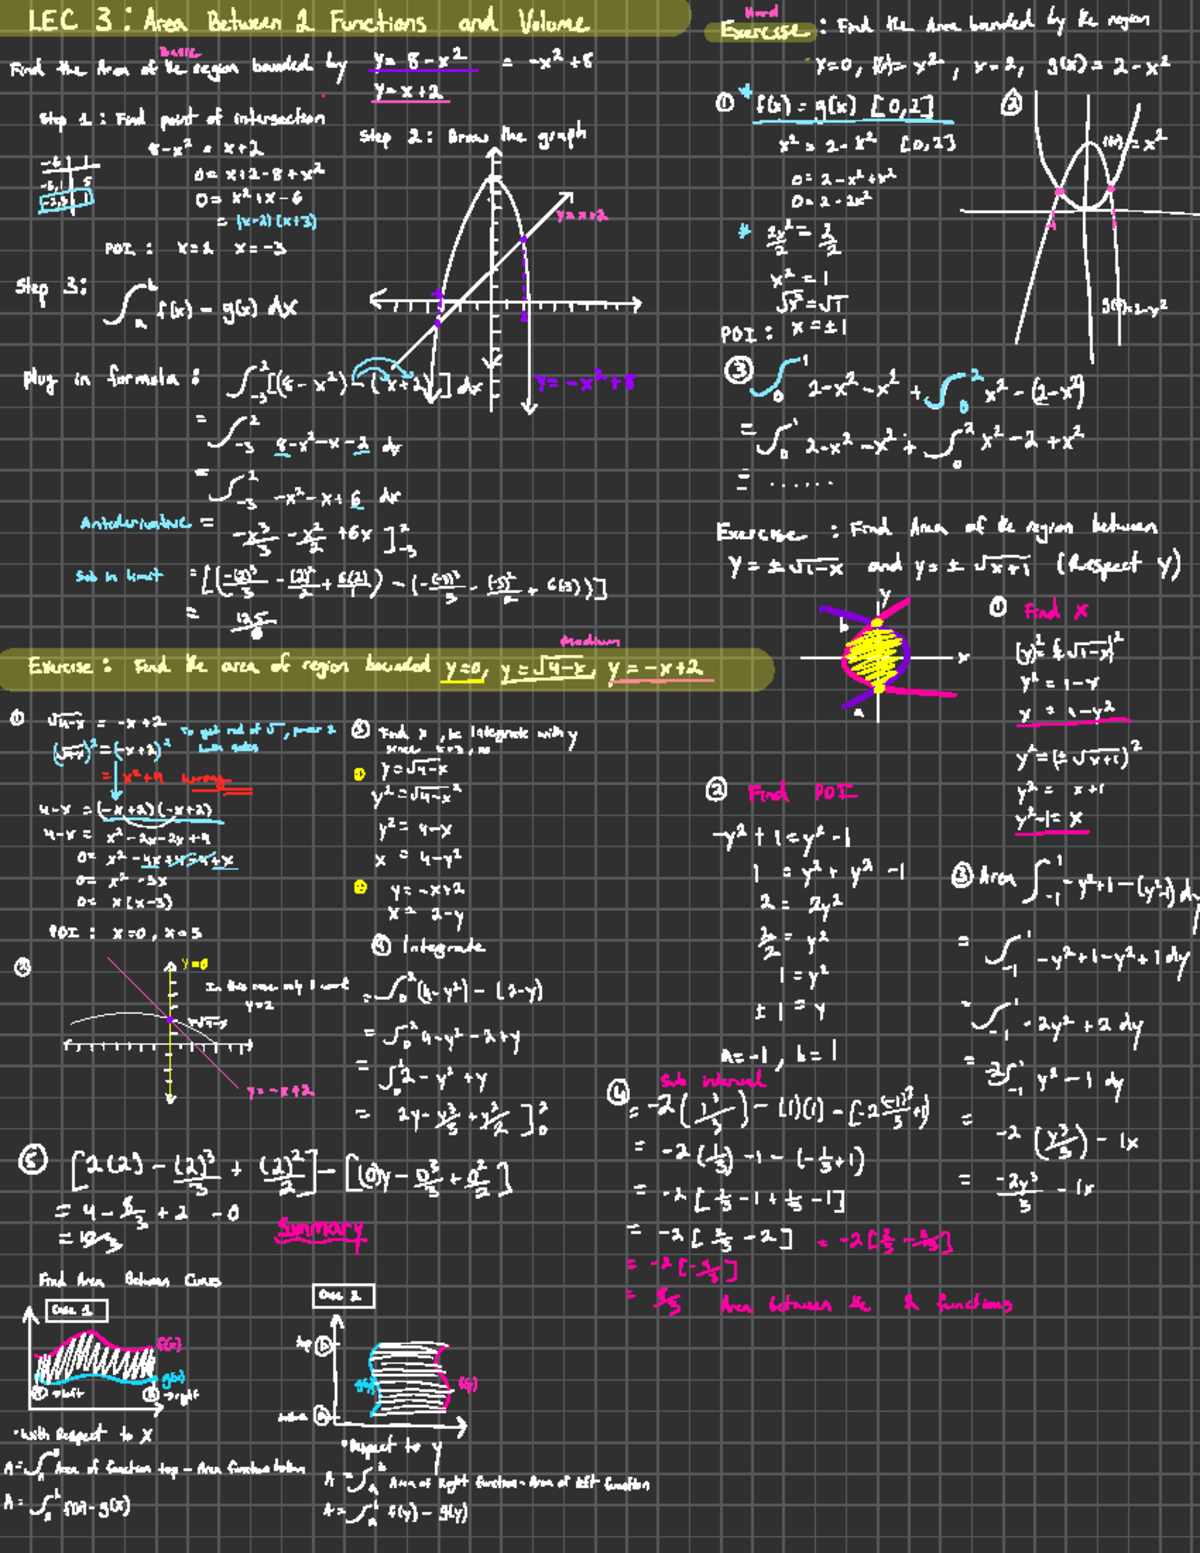 LEC 3: Area Between 2 Functions and Volume
Basic
Find the Area of the region bounded by y = 8 - x² = -x² + 8
y = x + 2
Step 1: Find point of intersection
8 - x² = x + 2
0 = x + 2 - 8 + x²
0 = x² + x - 6
= (x-2)(x+3)
POI: x = 2 x = -3
Step 2: Draw the graph
y = x + 2
y = -x² + 8
Step 3: ∫ₐᵇ f(x) - g(x) dx
Plug in formula: ∫₋₃² [(8 - x²) - (x+2)] dx
= ∫₋₃² 8 - x² - x - 2 dx
= ∫₋₃² -x² - x + 6 dx
Antiderivative = -x³/3 - x²/2 + 6x ]₋₃²
Sub in limit = [(-(2)³/3 - (2)²/2 + 6(2)) - (-(-3)³/3 - (-3)²/2 + 6(-3))]
= 125/6
Medium
Exercise: Find the area of region bounded y=0, y = √4-x, y = -x+2
① √4-x = -x+2
(√4-x)² = (-x+2)²
To get rid of √, power 2
both sides
= x² + 4 wrong
4-x = (-x+2)(-x+2)
4-x = x² - 2x - 2x + 4
0 = x² - 4x + 4 - 4 + x
0 = x² - 3x
0 = x(x-3)
POI: x=0, x=3
②
y=0
In this case only I want
y=2
y=√4-x
y = -x+2
③ Find x, bc Integrate with y
① y = √4-x
y² = √4-x²
y² = 4-x
x = 4-y²
② y = -x+2
x = 2-y
④ Integrate
= ∫₀² (4-y²) - (2-y)
= ∫₀² 4-y² - 2+y
= ∫₀² 2 - y² + y
= 2y - y³/3 + y²/2 ]₀²
⑤ [2(2) - (2)³/3 + (2)²/2] - [(0)y - 0³/3 + 0²/2]
= 4 - 8/3 + 2 - 0
= 10/3
Summary
Find Area Between Curves
Case 1
f(x)
g(x)
a → left
b → right
• with Respect to X
A = ∫ₐᵇ Area of function top - Area function bottom
A = ∫ₐᵇ f(x) - g(x)
Case 2
top b
a
g(y)
f(y)
• Respect to y
A = ∫ₐᵇ Area of Right function - Area of left function
A = ∫ₐᵇ f(y) - g(y)
Hard
Exercise: Find the Area bounded by the region
y=0, f(x) = x², x=2, g(x) = 2 - x²
① * f(x) = g(x) [0,2]
x² = 2 - x² [0,2]
0 = 2 - x² + x²
0 = 2 - 2x²
* 2x²/2 = 2/2
x² = 1
√x² = √1
POI: x = ±1
②
f(x) = x²
-1 1
g(x) = 2-x²
③ ∫₀¹ 2-x² - x² + ∫₀² x² - (2-x²)
= ∫₀¹ 2-x² - x² + ∫₀² x² - 2 + x²
= ......
Exercise: Find Area of the region between
y = ± √1-x and y = ± √x+1 (Respect y)
y
b
x
a
① Find X
(y)² = (± √1-x)²
y² = 1-x
x = 1-y²
y² = (± √x+1)²
y² = x+1
y²-1 = x
② Find POI
-y² + 1 = y² - 1
1 = y² + y² - 1
2 = 2y²
2/2 = y²
1 = y²
± 1 = y
a = -1, b = 1
③ Area ∫₋₁¹ -y²+1 - (y²-1) dy
= ∫₋₁¹ -y²+1-y²+1 dy
= ∫₋₁¹ -2y² + 2 dy
= -2∫₋₁¹ y² - 1 dy
= -2 (y³/3) - 1x
= -2y³/3 - 1x
Sub interval
④ = -2(1³/3) - (1)(1) - [-2 (-1)³/3 + 1)
= -2(1/3) - 1 - (-1/3+1)
= -2 [1/3 - 1 + 1/3 - 1]
= -2 [2/3 - 2] = -2[2/3 - 6/3]
= -2[-4/3]
= 8/3 Area between the 2 functions